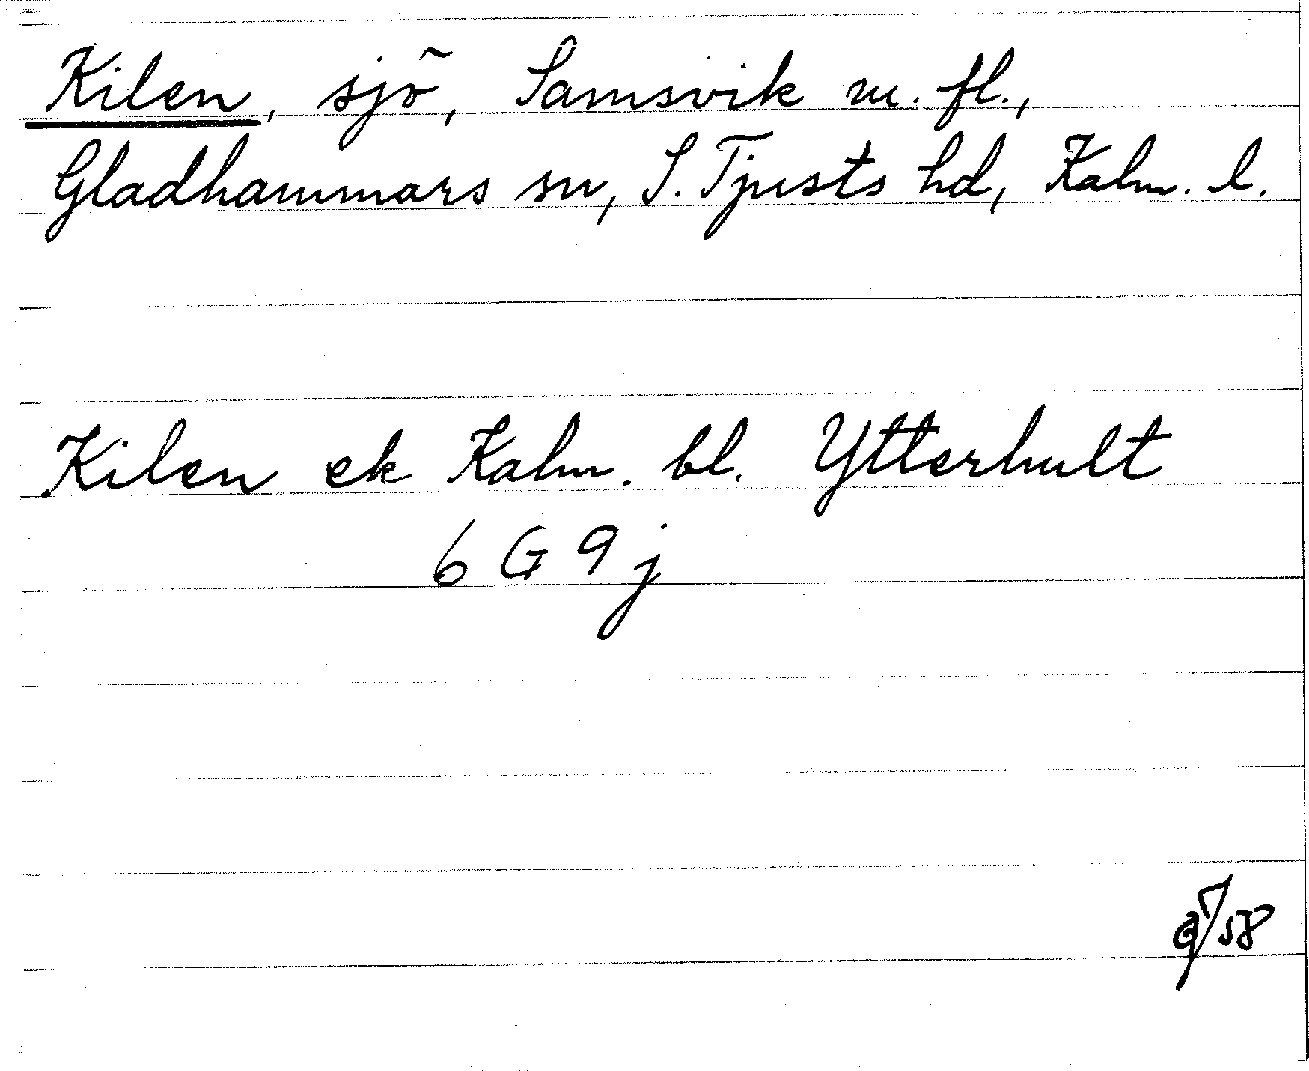 Kilen, sjö, Samsvik m. fl.,
Gladhammars sn, S. Tjusts hd, Kalm. l.
Kilen ek Kalm. bl. Ytterhult
6 G 9 j
58